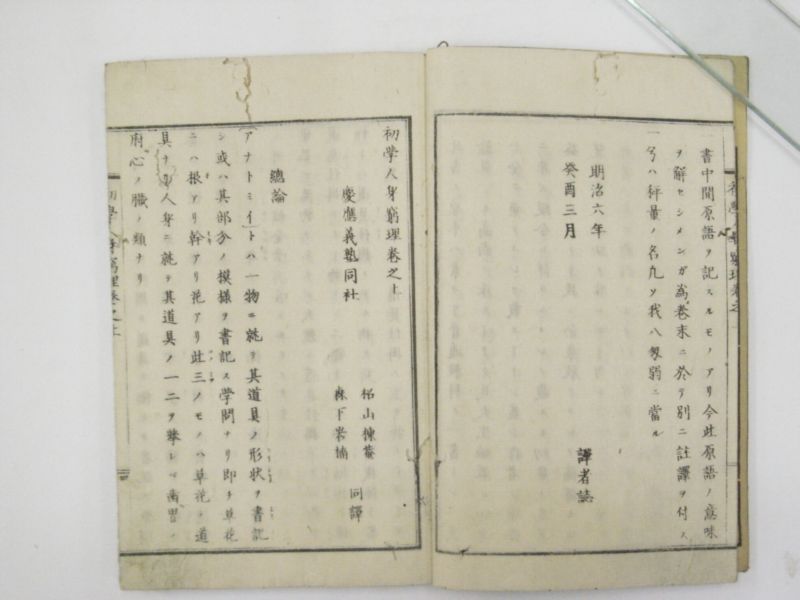 一書中間原語ヲ記スルモノアリ今此原語ノ意味
ヲ解セシメンガ爲巻末ニ於テ別ニ註譯ヲ付ス
一弓ハ秤量ノ名九ソ我八匁弱ニ當ル
明治六年
癸酉三月
譯者誌
初學人身窮理卷之上
慶應義塾同社
松山棟菴
森下岩楠
同譯
總論
アナトミイトハ一物ニ就テ其道具ノ形状ヲ書記
シ或ハ其部分ノ模様ヲ書記ス學問ナリ即チ草花
ニハ根アリ幹アリ花アリ此三ノモノハ草花ノ道
具ナリ人身ニ就テ其道具ノ一二ヲ擧レバ歯胃ノ
府心ノ臓ノ類ナリ